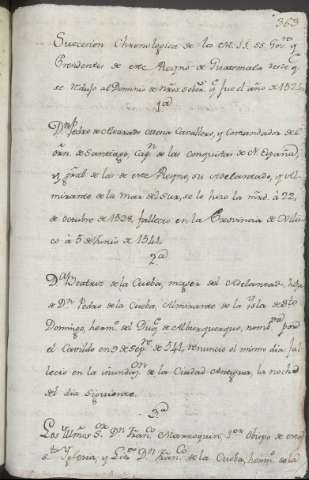 363
Succesion Chronologica de los M. II. SS. Gov.res y
Presidentes de este Reyno de Guatemala desde q
se redujo al Dominio de nros Sober.s q fue el año de 1524
1.a
D.n Pedro de Alvarado Cavallero, y Comendador de el
orn. de Santiago, Cap.n de las conquistas de N. España,
y gral de las de este Reyno, su Adelantado, y Al-
mirante de la Mar del Sur, se le hizo la mrd. à 22,
de octubre de 1538, fallecio en la Provincia de
à 5 de Junio de 1541.
2.a
D.a Beatriz de la Cueba, muger del Adelantado, hija
de D.n Pedro de la Cueba, Almirante de la Ysla de S.to
Domingo, herm.a del Duq.e de Alburquerque, nomb.da por
el Cavildo en 9 de Sep.re de 541, renuncio el mismo dia, fa-
llecio en la inundaz.on de la Ciudad Antigua, la noche
del dia siguiente.
3.a
Los D.n Fran.co Marroquin, 1.er Obispo de esta
S.ta Yglesia, y Liz.do D.n Fran.co de la Cueba, herm.o de la